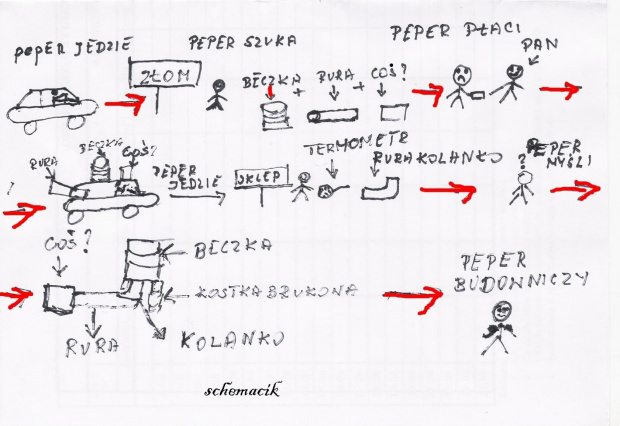 PEPER JEDZIE
ZŁOM
PEPER SZUKA
BECZKA + RURA + COŚ?
PEPER PŁACI
PAN
?
RURA
BECZKA
COŚ?
PEPER
JEDZIE
SKLEP
TERMOMETR
RURA KOLANKO
?
PEPER
MYŚLI
COŚ?
BECZKA
KOSTKA BRUKONA
RURA
KOLANKO
PEPER
BUDOWNICZY
schemacik